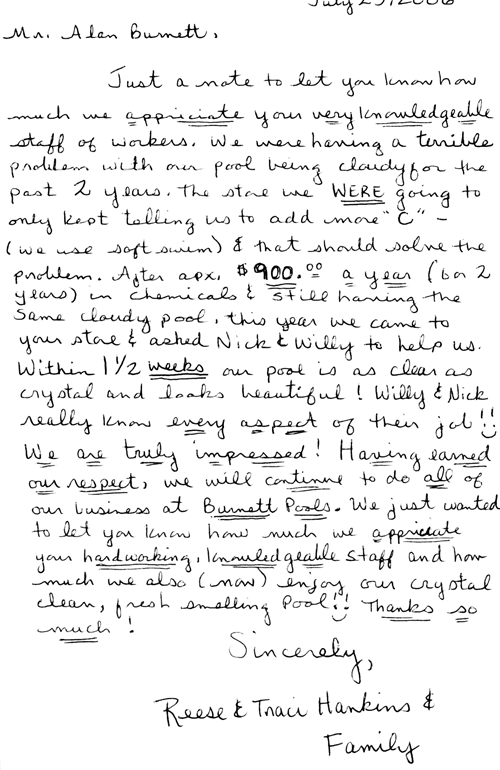 July 25, 2006
Mr. Alan Burnett,
Just a note to let you know how
much we appriciate your very knowledgeable
staff of workers. We were having a terrible
problem with our pool being cloudy for the
past 2 years. The store we WERE going to
only kept telling us to add more "C" -
(we use soft swim) & that should solve the
problem. After apx. $900.00 a year (for 2
years) in chemicals & still having the
same cloudy pool, this year we came to
your store & asked Nick & Willy to help us.
Within 1 1/2 weeks our pool is as clear as
crystal and looks beautiful! Willy & Nick
really know every aspect of their job!!
We are truly impressed! Having earned
our respect, we will continue to do all of
our business at Burnett Pools. We just wanted
to let you know how much we appriciate
your hardworking, knowledgeable staff and how
much we also (now) enjoy our crystal
clean, fresh smelling Pool!! Thanks so
much!
Sincerely,
Reese & Traci Hankins &
Family